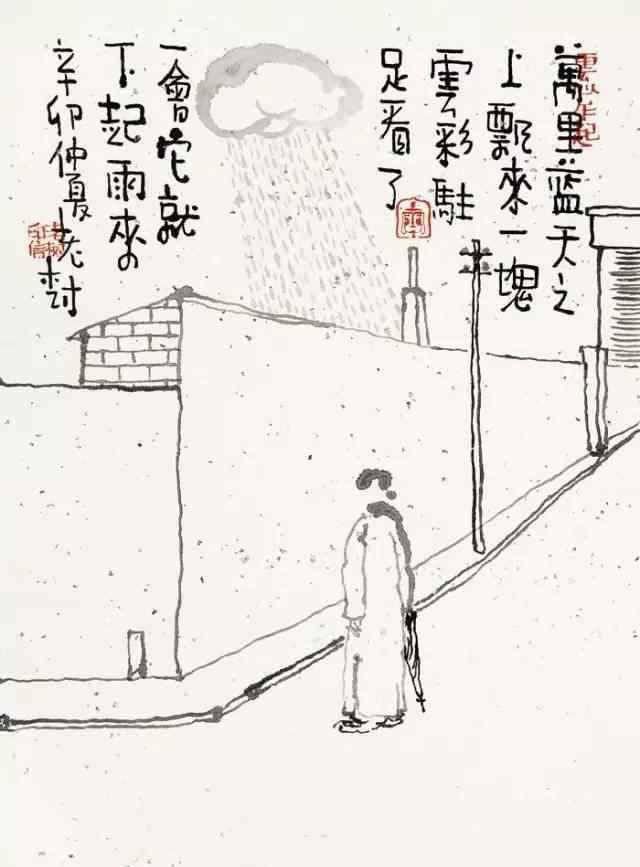 萬里蓝天之
上飄來一塊
雲彩駐
足看了
一會它就
下起雨來
辛卯仲夏老树
老树印信